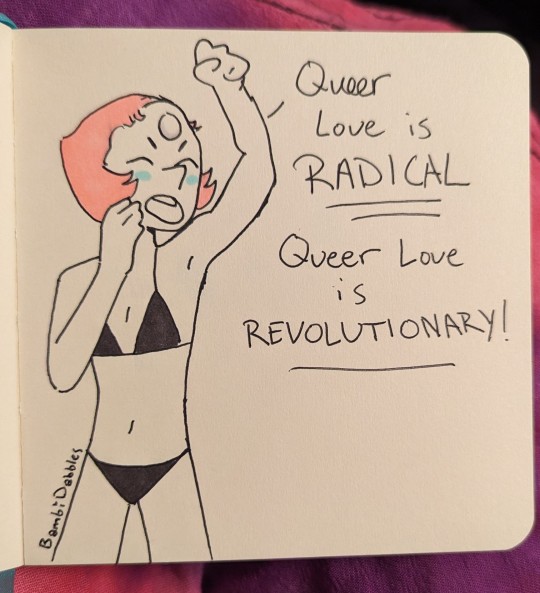 Queer
Love is
RADICAL
Queer Love
is
REVOLUTIONARY!
BambiDabbles